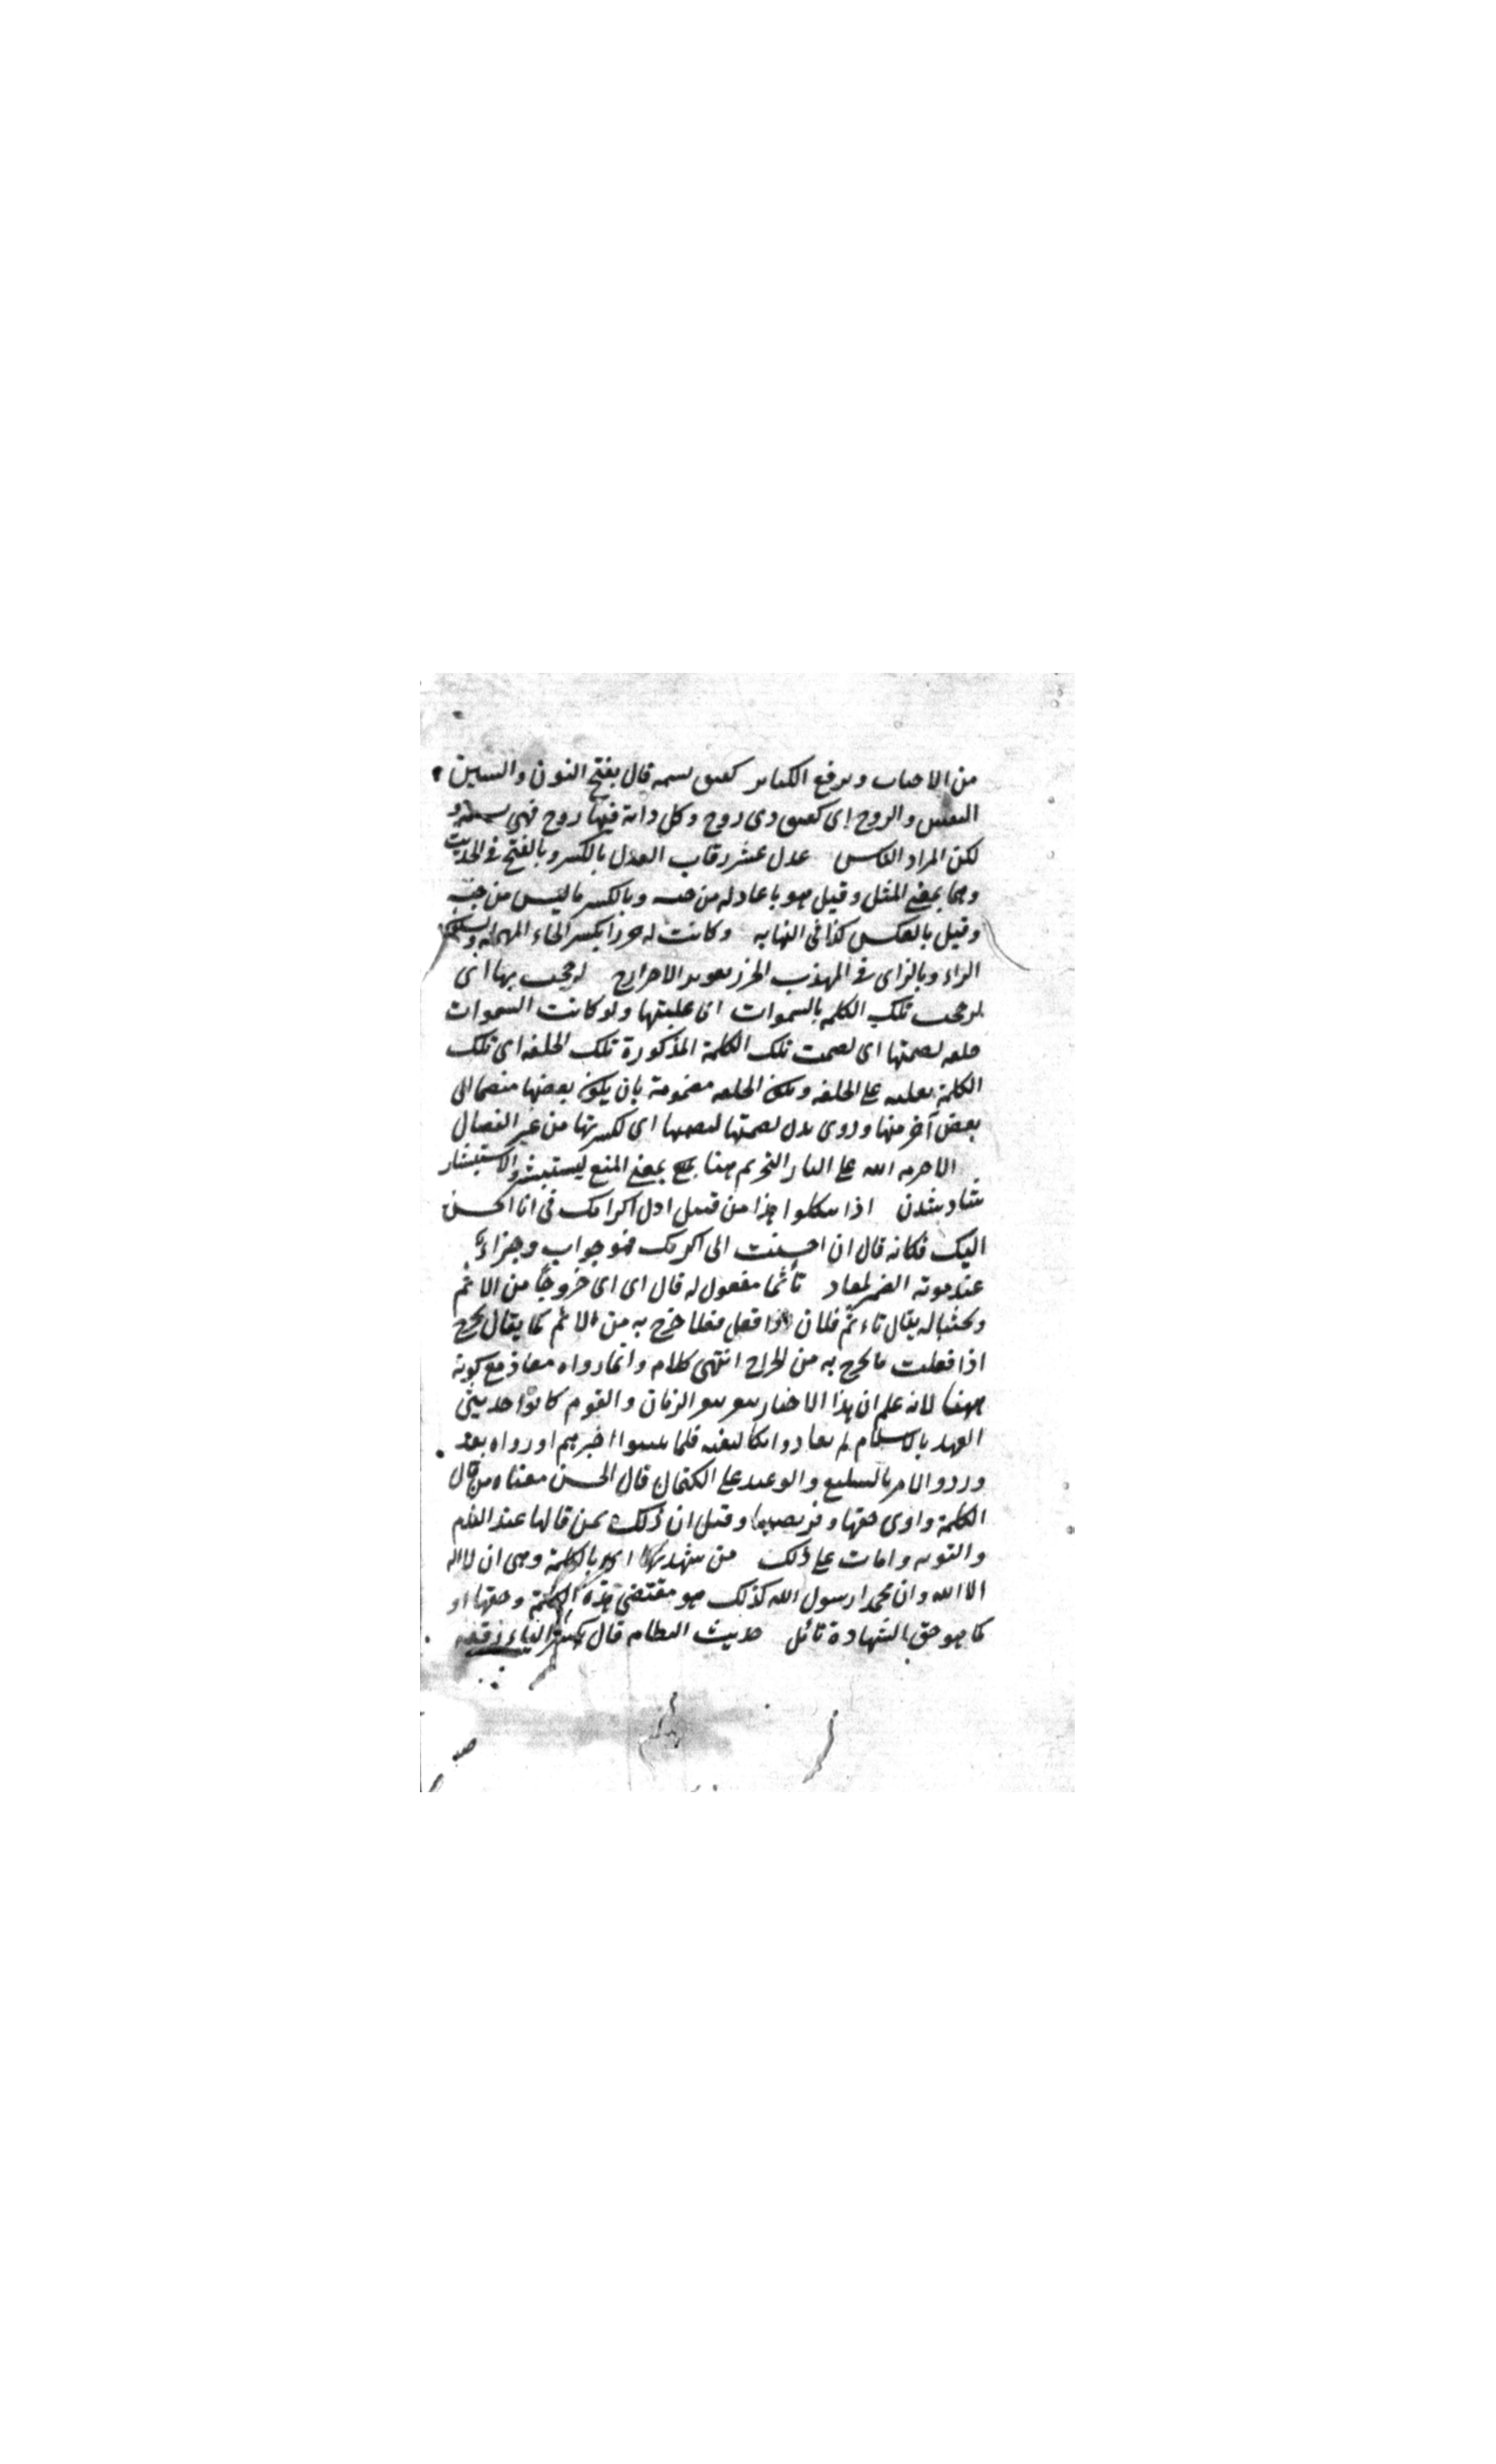 من الاحباب ويرفع الكتاب كعتق نسمه قال بفتح النون والسين
النفس والروح اى كعتق ذى روح وكل دابة فيها روح فهى نسمة و
لكن المراد الناس عدل عشر رقاب العدل بالكسر وبالفتح فى الحديث
وهما بمعنى المثل وقيل هو با عادله من جنسه وبالكسر ما ليس من جنسه
وقيل بالعكس كذا فى النهايه وكانت له حرزا بكسر الحاء المهمله وسكون
الراء وبالزاى فى المهذب الحرز تعويذ الاحراز لرجحت بها اى
لرجحت تلك الكلمه بالسموات اى غلبتها ولو كانت السموات
حلقه لصمتها اى لصمت تلك الكلمة المذكورة تلك الحلقه اى تلك
الكلمة تغلبه على الحلقه وتكون الحلقه مضمومة بان يكون بعضها منضما الى
بعض آخر منها وروى بدل لصمتها لفصمها اى لكسرتها من غير انفصال
الا حرمه الله على النار التحريم هنا بمعنى المنع ليستبشروا الاستبشار
شاد شدن اذا يتكلوا هذا من قبيل اذن اكرامك فى انا احسن
اليك فكانه قال ان احسنت الى اكرمك فهو جواب وجزاء
عند موته الضمير لمعاذ تأثما مفعول له قال اى اى خروجا من الاثم
وتجنبا له يقال تاءثم فلان اذا فعل فعلا خرج به من الاثم كما يقال تحرج
اذا فعلت ما تخرج به من الحرج انتهى كلامه وانما رواه معاذ مع كونه
منهيا لانه علم ان هذا الاخبار يتغير بتغير الزمان والقوم كانوا حديثى
العهد بالاسلام لم يعتادوا تكاليفه فلما تثبتوا اخبرهم او رواه بعد
ورود الامر بالتبليغ والوعيد على الكتمان قال الحسن معناه من قال
الكلمة وادى حقها وفريضتها وقيل ان ذلك لمن قالها عند الندم
والتوبه ومات على ذلك من شهد بها اى بالكلمة وهى ان لا اله
الا الله وان محمدا رسول الله كذلك هو مقتضى هذه الكلمة وحقها او
كما هو حق الشهادة تأمل حديث البطاقه قال بكسر الباء رقعه